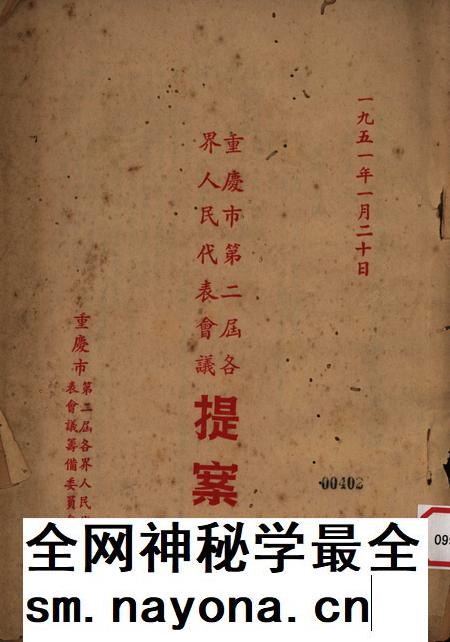 一九五一年一月二十日
重慶市第二屆各
界人民代表會議
提案
重慶市
第二屆各界人民
表會議籌備委員
00402
09
全网神秘学最全
sm.nayona.cn